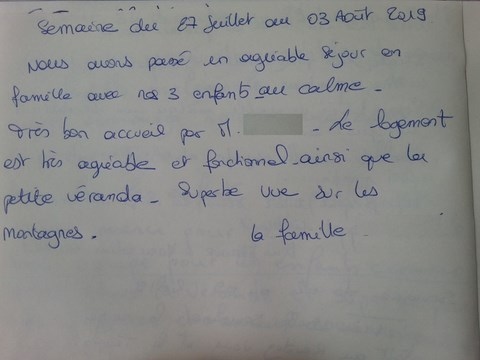 Semaine du 27 Juillet au 03 Août 2019
Nous avons passé un agréable séjour en
famille avec nos 3 enfants au calme.
Très bon accueil par M. - Le logement
est très agréable et fonctionel ainsi que la
petite véranda - Superbe vue sur les
montagnes. la famille